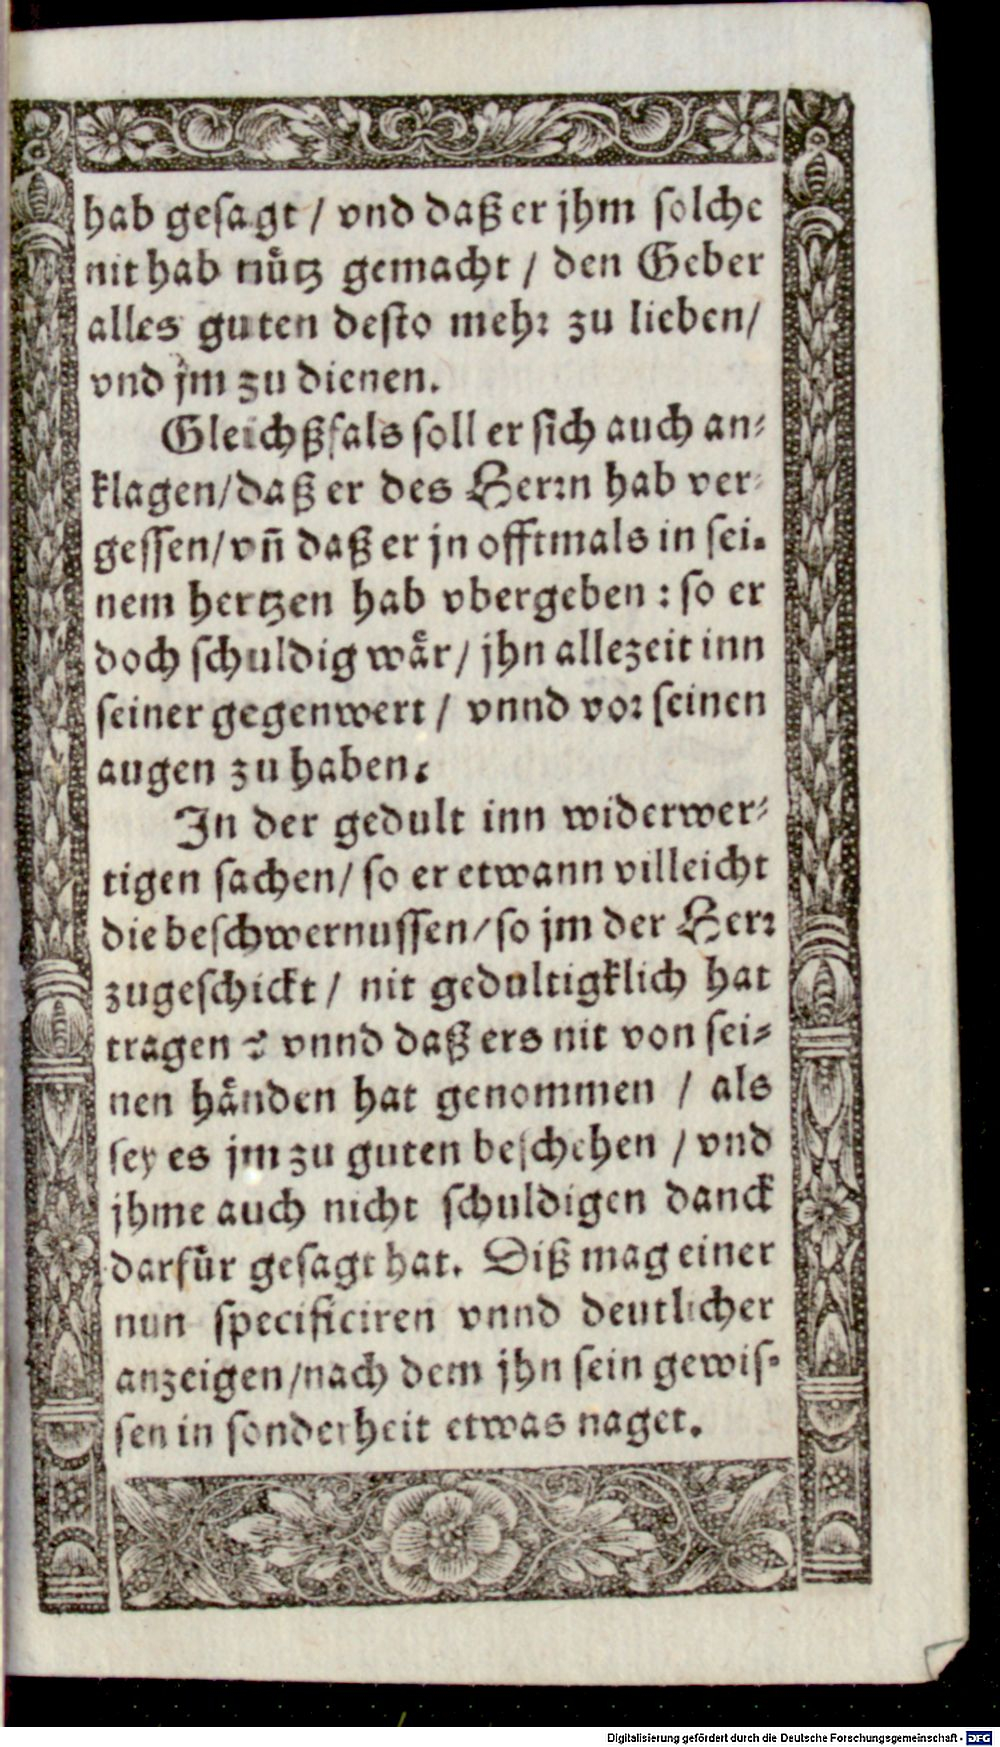 hab gesagt / vnd daß er jhm solche
nit hab nuͤtz gemacht / den Geber
alles guten desto mehr zu lieben/
vnd jm zu dienen.
Gleichßfals soll er sich auch an-
klagen/daß er des Herrn hab ver-
gessen/vñ daß er jn offtmals in sei-
nem hertzen hab vbergeben : so er
doch schuldig waͤr/ jhn allezeit inn
seiner gegenwert / vnnd vor seinen
augen zu haben.
In der gedult inn widerwer-
tigen sachen/ so er etwann villeicht
die beschwernussen/so jm der Herr
zugeschickt / nit gedultigklich hat
tragen : vnnd daß ers nit von sei-
nen haͤnden hat genommen / als
sey es jm zu guten beschehen / vnd
jhme auch nicht schuldigen danck
darfuͤr gesagt hat. Diß mag einer
nun specificiren vnnd deutlicher
anzeigen/nach dem jhn sein gewis-
sen in sonderheit etwas naget.
Digitalisierung gefördert durch die Deutsche Forschungsgemeinschaft - DFG